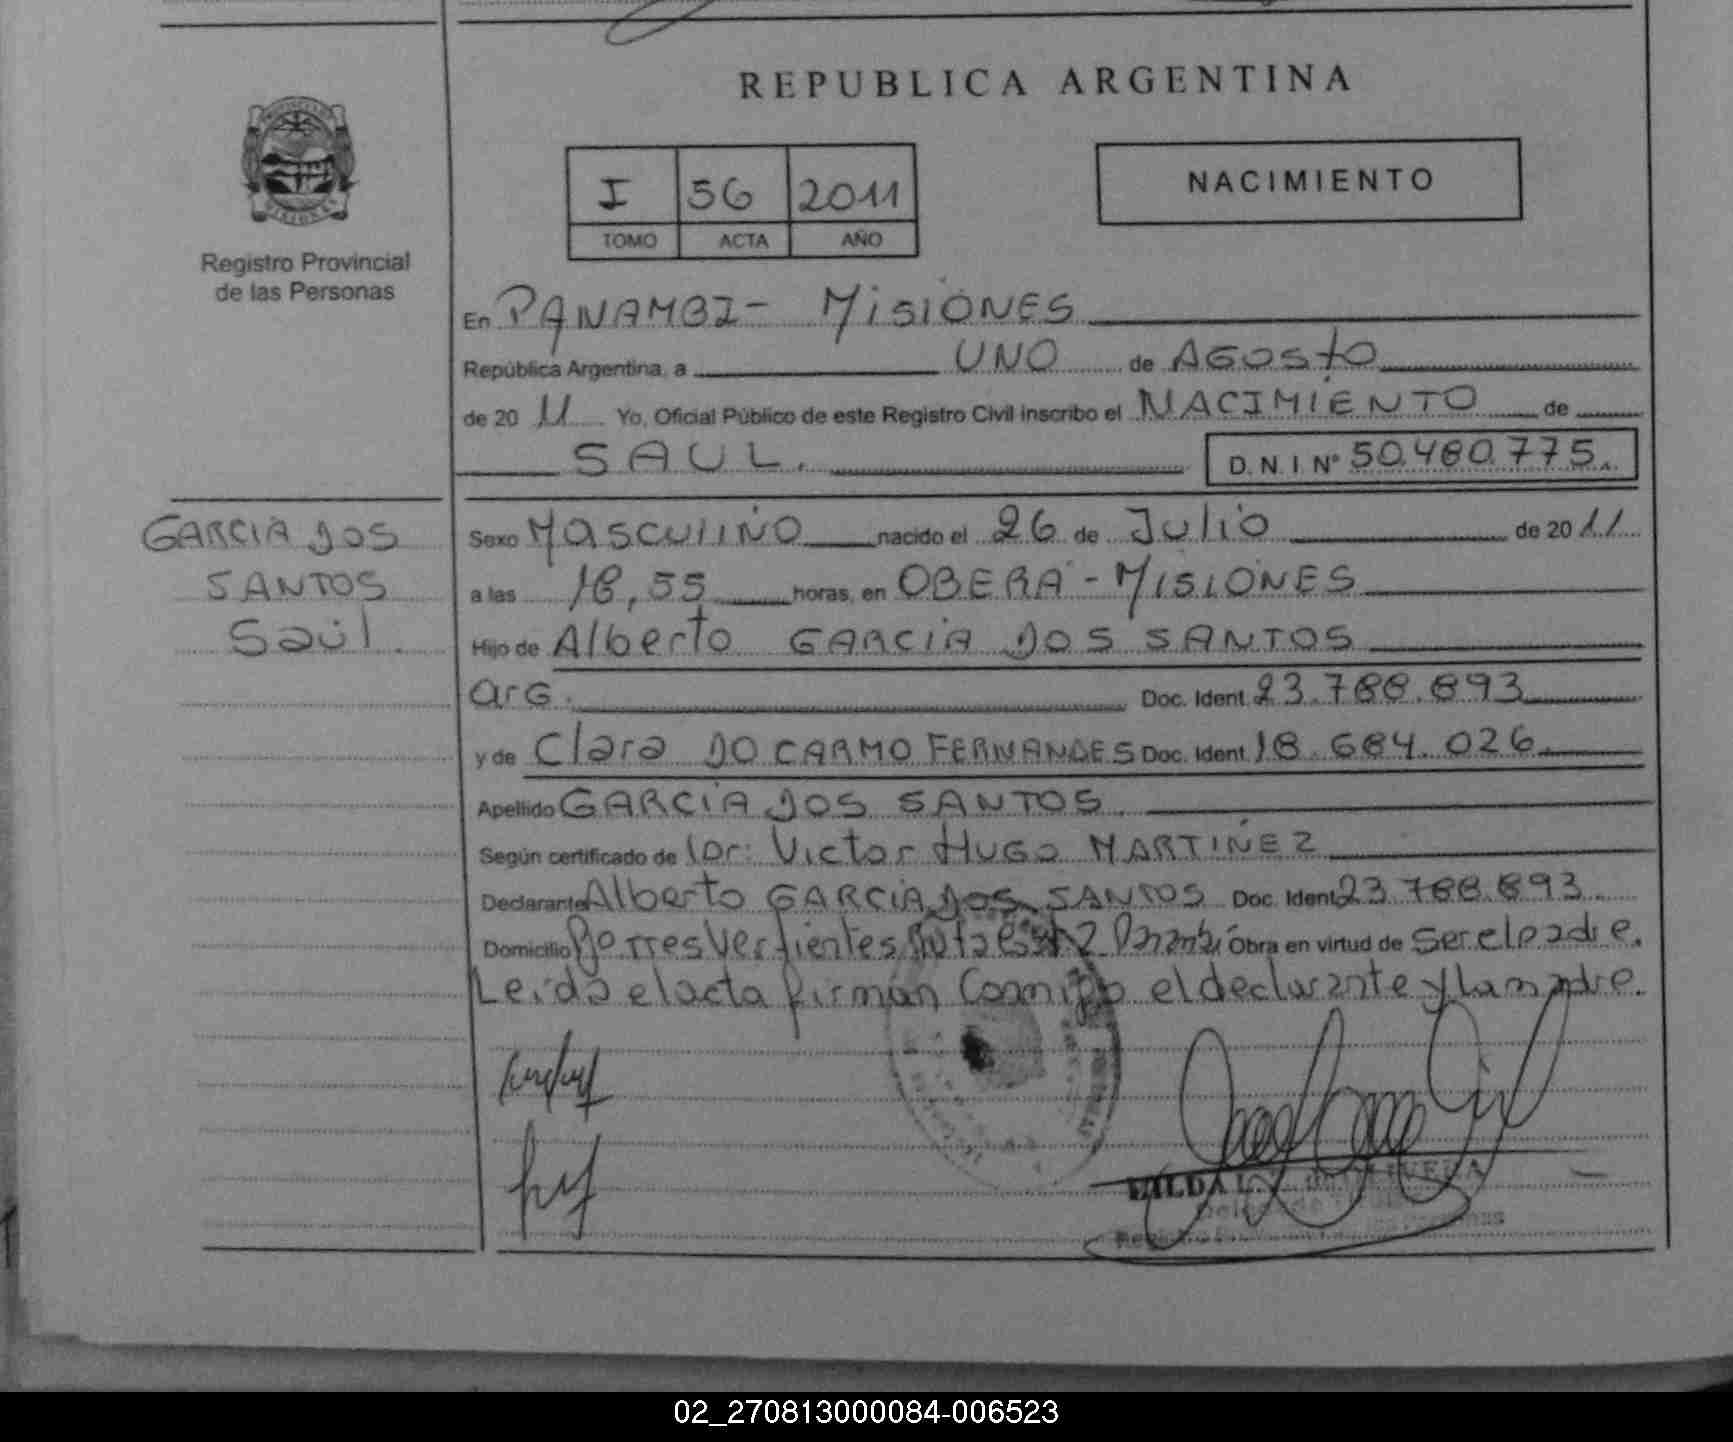 REPUBLICA ARGENTINA
I 56 2011
TOMO ACTA AÑO
NACIMIENTO
Registro Provincial
de las Personas
En PANAMBI - MISIONES
República Argentina, a UNO de AGOSTO
de 20 11 Yo, Oficial Público de este Registro Civil inscribo el NACIMIENTO de
SAUL. D.N.I Nº 50.480.775
GARCIA DOS
SANTOS
Saúl.
Sexo MASCULINO nacido el 26 de Julio de 20 11
a las 18,55 horas, en OBERA - MISIONES
Hijo de Alberto GARCIA DOS SANTOS
arG. Doc. Ident. 23.788.893
y de Clara DO CARMO FERNANDES Doc. Ident. 18.684.026
Apellido GARCIA DOS SANTOS.
Según certificado de Victor HUGO MARTINEZ
Declarante Alberto GARCIA DOS SANTOS Doc. Ident. 23.788.893
Domicilio Vertientes Panambi Obra en virtud de ser el padre.
Leída el acta firman Conmigo el declarante y la madre.
02_270813000084-006523